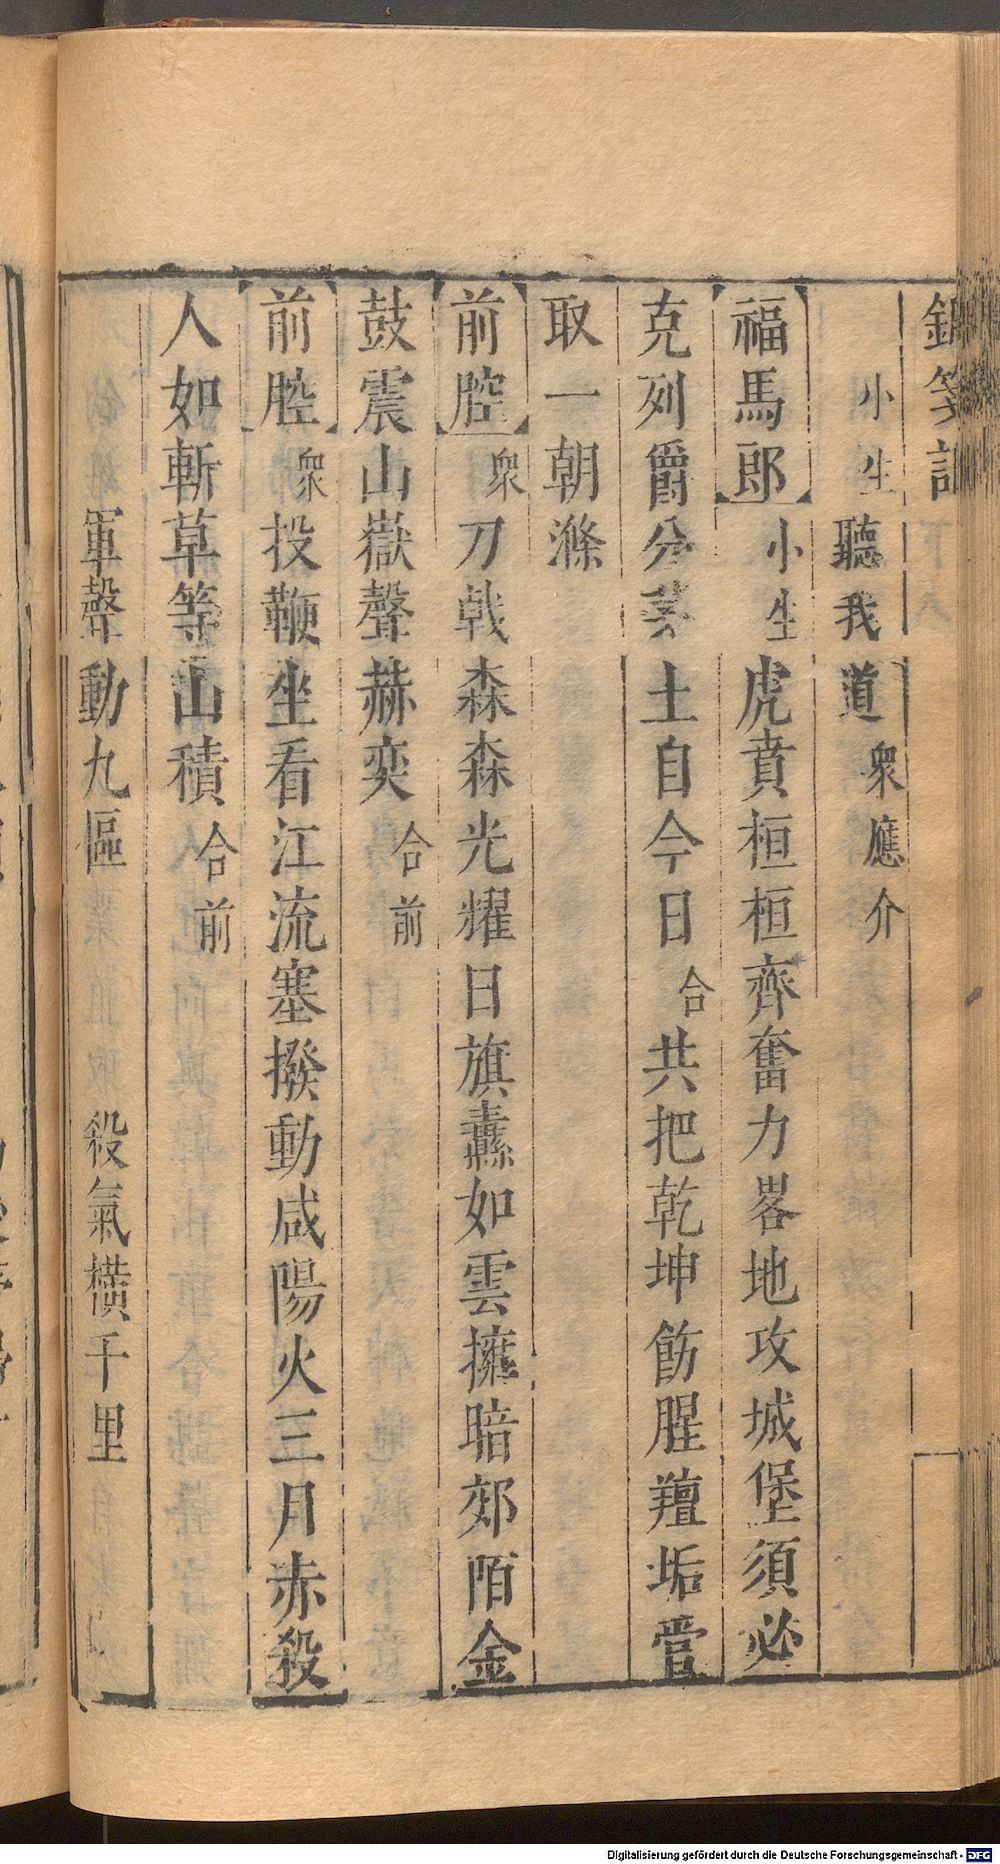 小生聽我道衆應介
福馬郎小生虎賁桓桓齊奮力畧地攻城堡須必
克列爵分茅土自今日合共把乾坤飭腥羶垢嘗
取一朝滌
前腔衆刀戟森森光耀日旗纛如雲擁暗郊陌金
鼓震山嶽聲赫奕合前
前腔衆投鞭坐看江流塞撥動咸陽火三月赤殺
人如斬草等山積合前
軍聲動九區 殺氣橫千里
Digitalisierung gefördert durch die Deutsche Forschungsgemeinschaft - DFG